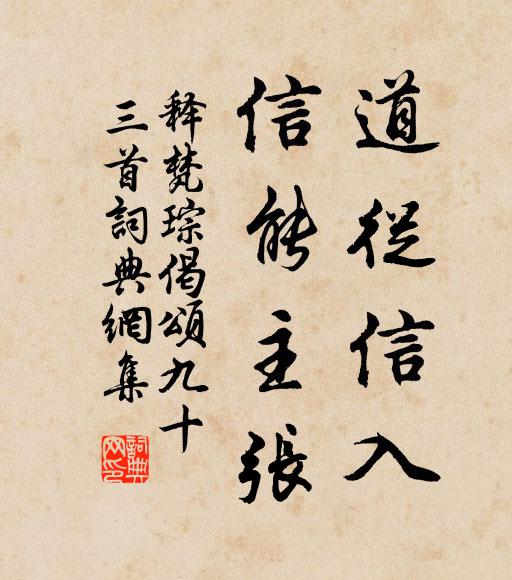 道從信入
信能主張
释梵琮偈頌九十
三首詞典網集
詞典
网印